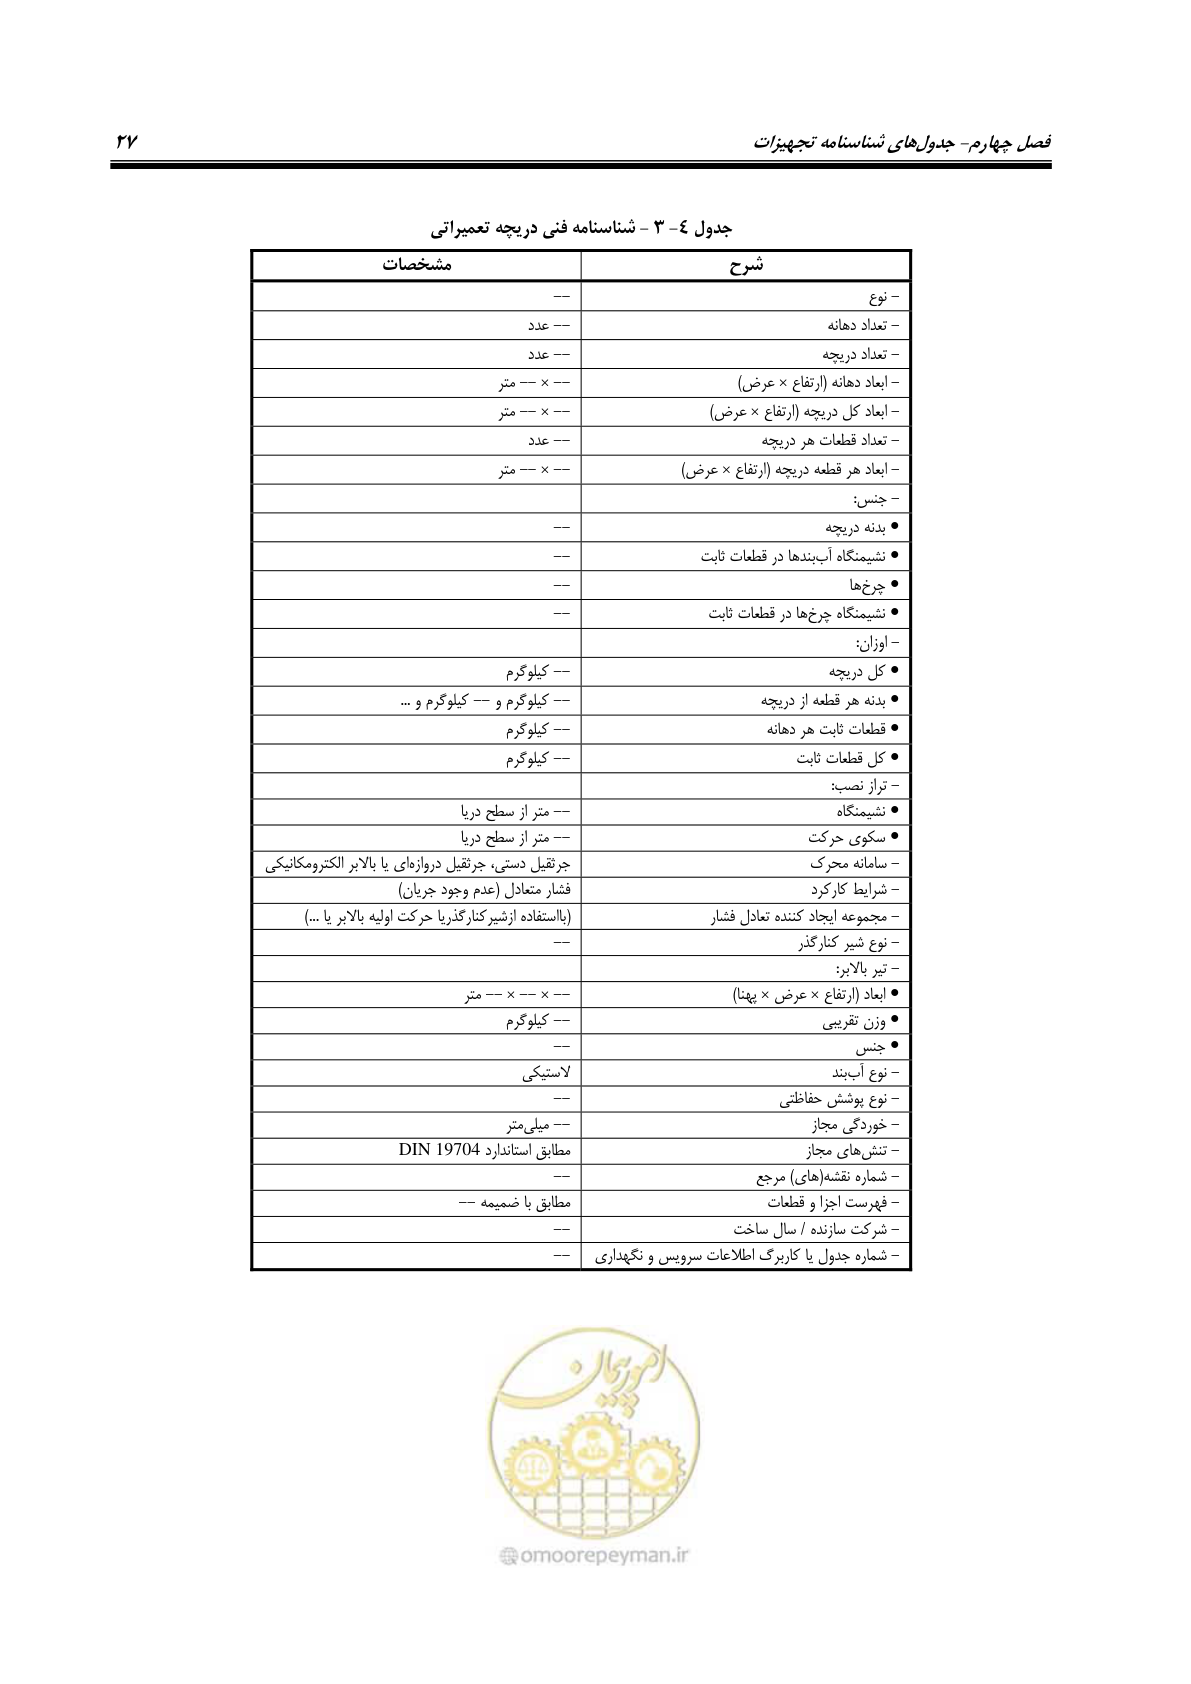 فصل چهارم- جدول‌های شناسنامه تجهیزات ۲۷
جدول ٤- ۳ - شناسنامه فنی دریچه تعمیراتی
شرح مشخصات
- نوع --
- تعداد دهانه -- عدد
- تعداد دریچه -- عدد
- ابعاد دهانه (ارتفاع × عرض) -- × -- متر
- ابعاد کل دریچه (ارتفاع × عرض) -- × -- متر
- تعداد قطعات هر دریچه -- عدد
- ابعاد هر قطعه دریچه (ارتفاع × عرض) -- × -- متر
- جنس:
● بدنه دریچه --
● نشیمنگاه آب‌بندها در قطعات ثابت --
● چرخ‌ها --
● نشیمنگاه چرخ‌ها در قطعات ثابت --
- اوزان:
● کل دریچه -- کیلوگرم
● بدنه هر قطعه از دریچه -- کیلوگرم و -- کیلوگرم و ...
● قطعات ثابت هر دهانه -- کیلوگرم
● کل قطعات ثابت -- کیلوگرم
- تراز نصب:
● نشیمنگاه -- متر از سطح دریا
● سکوی حرکت -- متر از سطح دریا
- سامانه محرک جرثقیل دستی، جرثقیل دروازه‌ای یا بالابر الکترومکانیکی
- شرایط کارکرد فشار متعادل (عدم وجود جریان)
- مجموعه ایجاد کننده تعادل فشار (بااستفاده ازشیرکنارگذریا حرکت اولیه بالابر یا ...)
- نوع شیر کنارگذر --
- تیر بالابر:
● ابعاد (ارتفاع × عرض × پهنا) -- × -- × -- متر
● وزن تقریبی -- کیلوگرم
● جنس --
- نوع آب‌بند لاستیکی
- نوع پوشش حفاظتی --
- خوردگی مجاز -- میلی‌متر
- تنش‌های مجاز مطابق استاندارد DIN 19704
- شماره نقشه(های) مرجع --
- فهرست اجزا و قطعات مطابق با ضمیمه --
- شرکت سازنده / سال ساخت --
- شماره جدول یا کاربرگ اطلاعات سرویس و نگهداری --
امور پیمان
@omoorepeyman.ir